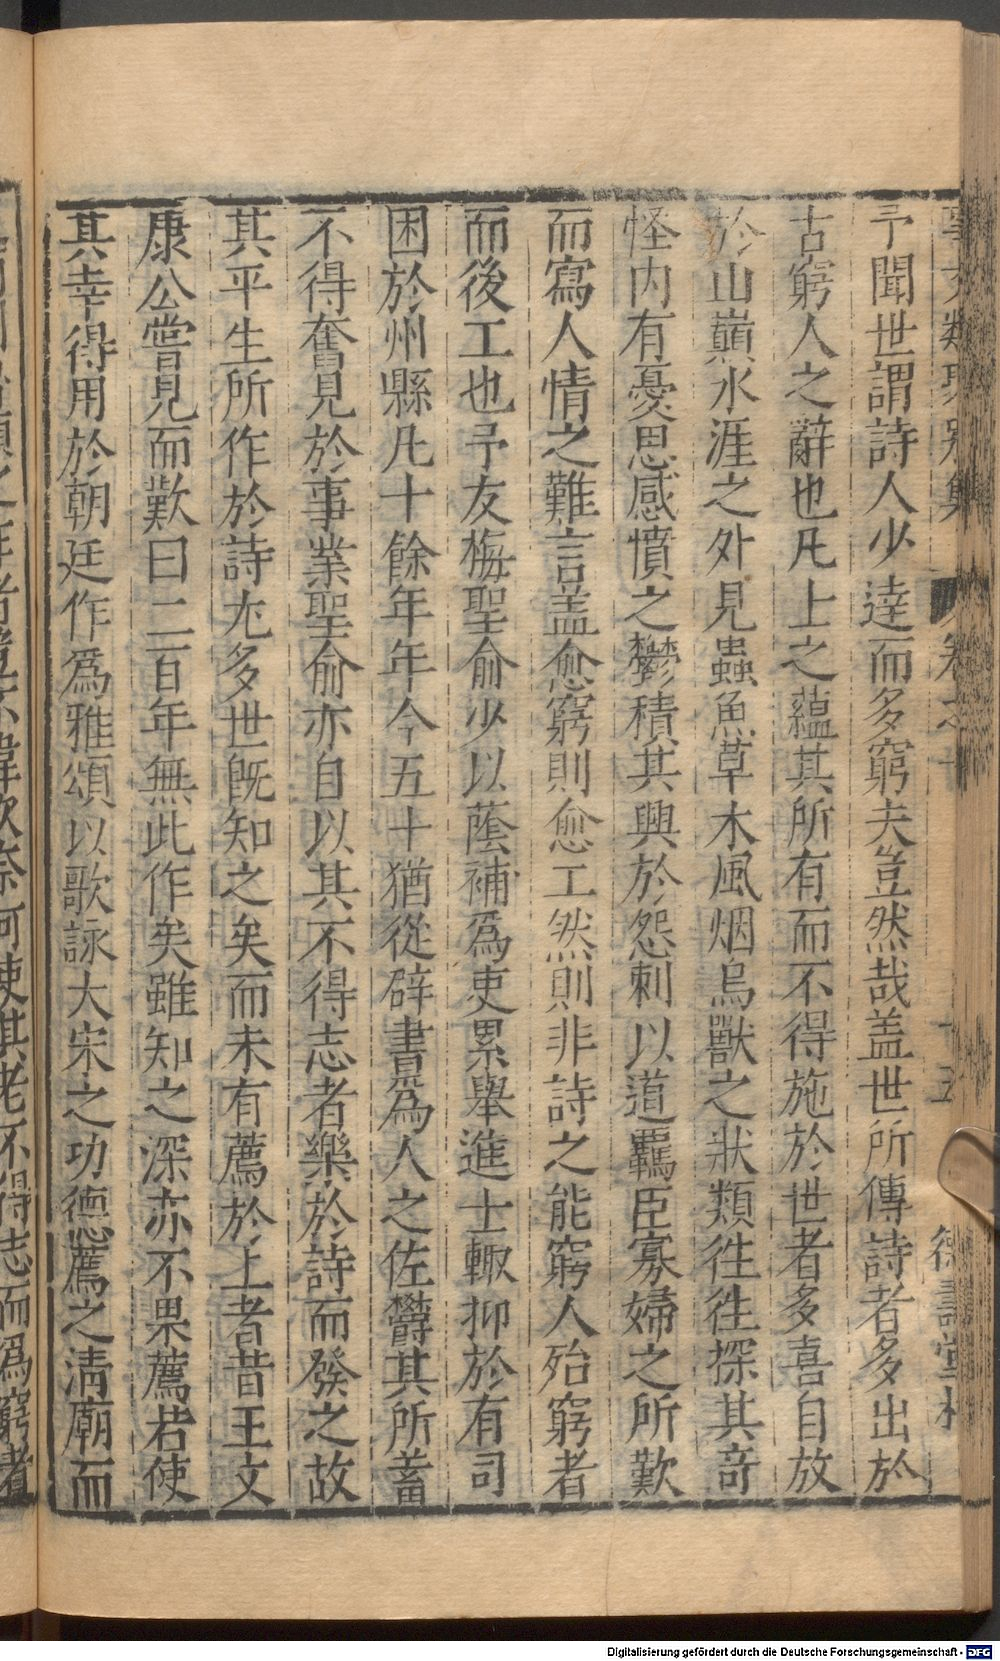 事文類聚別集 卷之十 十五 德壽堂梓
予聞世謂詩人少達而多窮夫豈然哉盖世所傳詩者多出於
古窮人之辭也凡上之蘊其所有而不得施於世者多喜自放
於山巔水涯之外見蟲魚草木風烟鳥獸之狀類徃徃探其竒
怪内有憂思感憤之鬱積其興於怨刺以道羈臣寡婦之所歎
而寫人情之難言盖愈窮則愈工然則非詩之能窮人殆窮者
而後工也予友梅聖俞少以蔭補爲吏累舉進士輙抑於有司
困於州縣凡十餘年年今五十猶從辟書爲人之佐欝其所蓄
不得奮見於事業聖俞亦自以其不得志者樂於詩而發之故
其平生所作於詩尤多世旣知之矣而未有薦於上者昔王文
康公嘗見而歎曰二百年無此作矣雖知之深亦不果薦若使
其幸得用於朝廷作爲雅頌以歌詠大宋之功德薦之清廟而
之作者豈不偉歟奈何使其老不得志而爲窮者
Digitalisierung gefördert durch die Deutsche Forschungsgemeinschaft - DFG